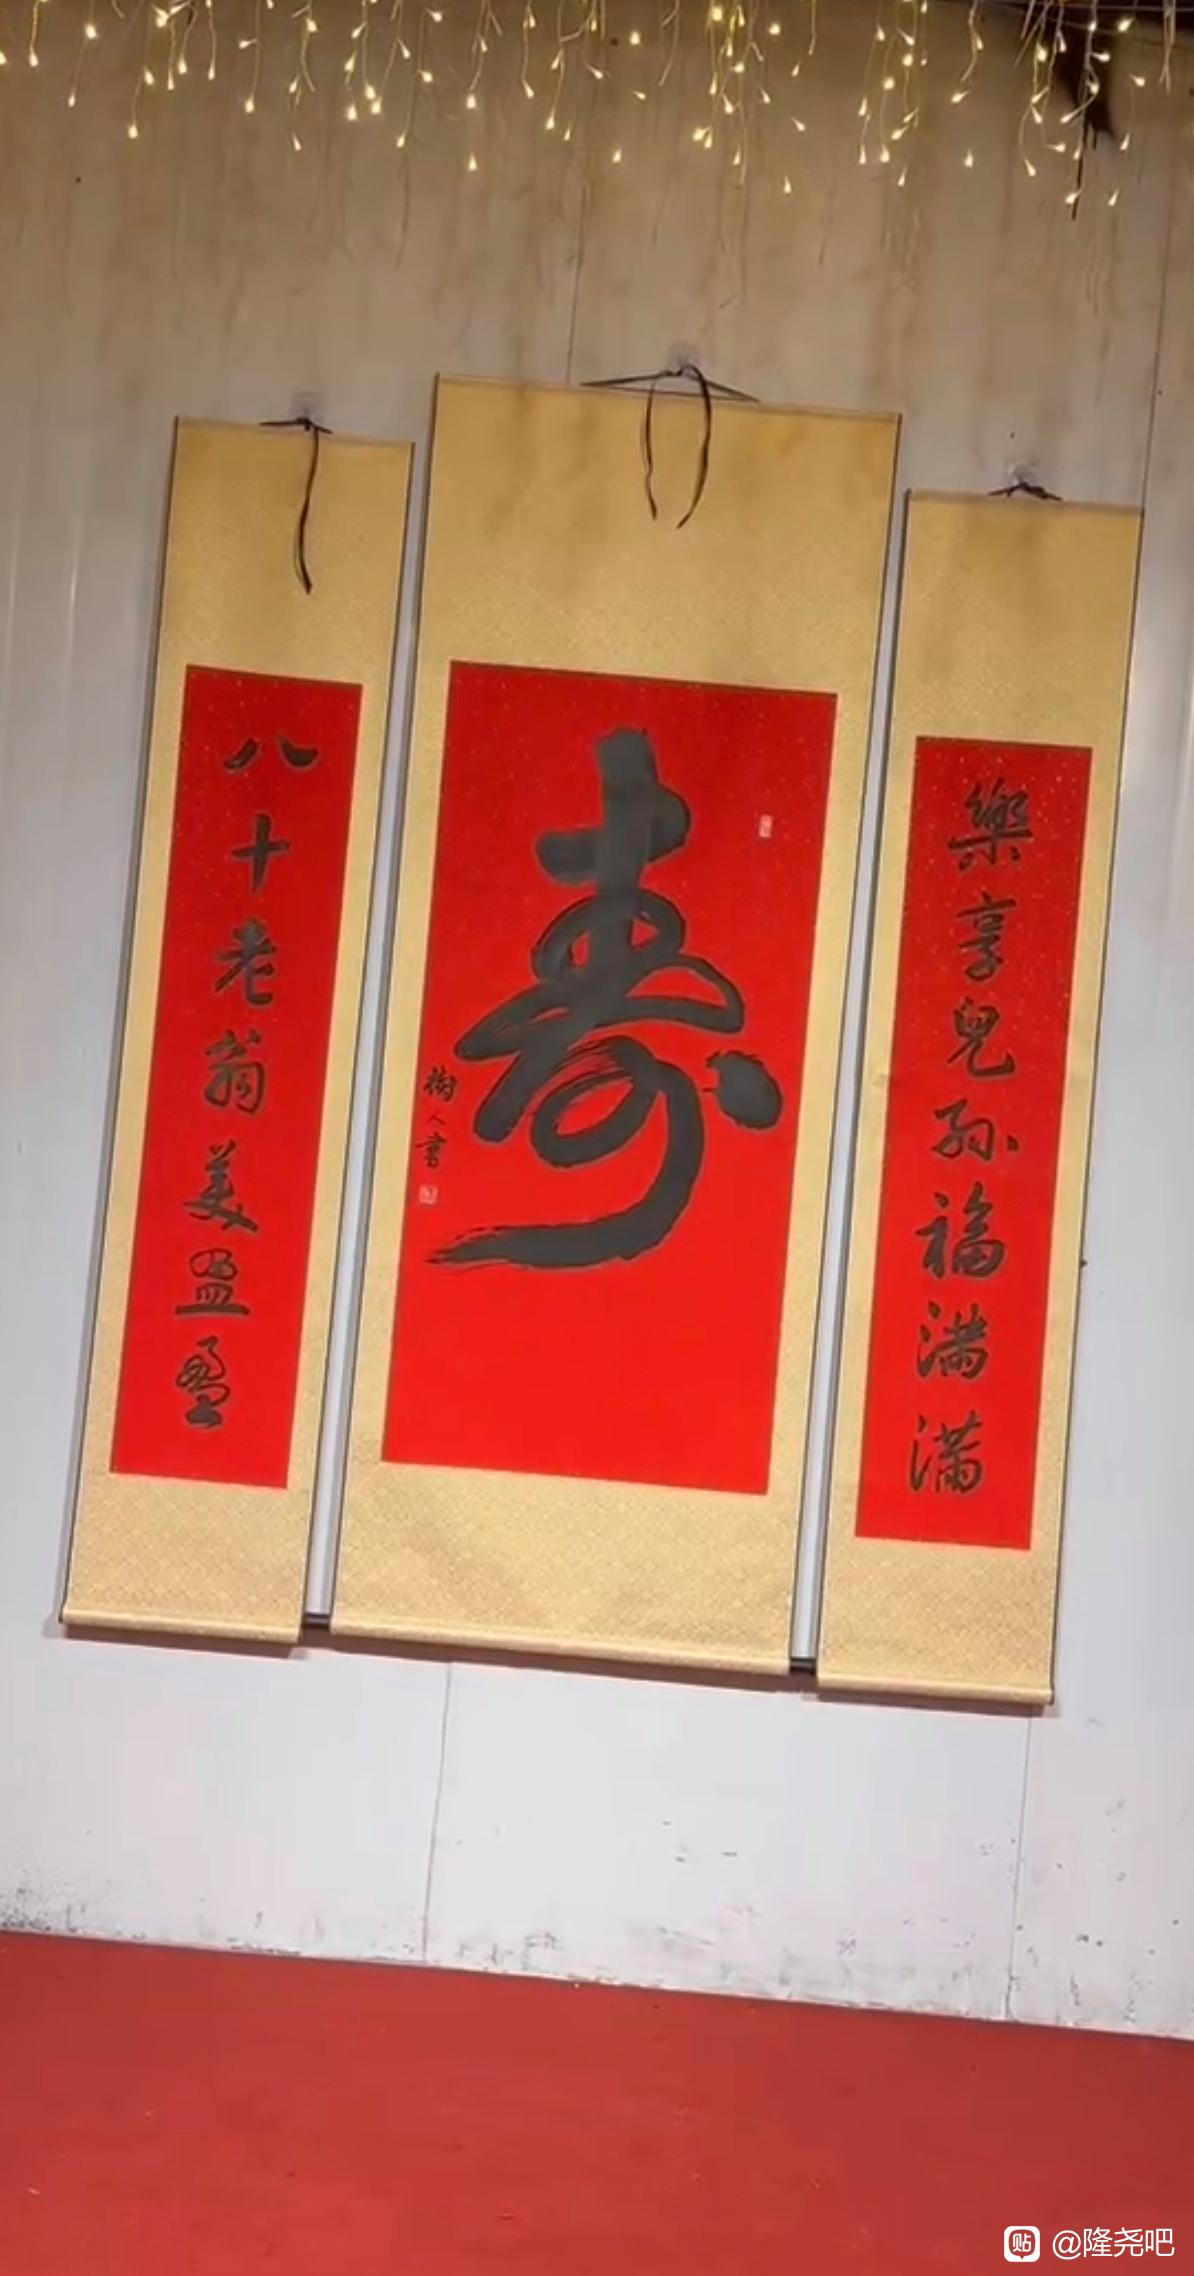 樂享兒孫福满滿
寿
樹人書
八十老翁美盈盈
贴 @隆尧吧